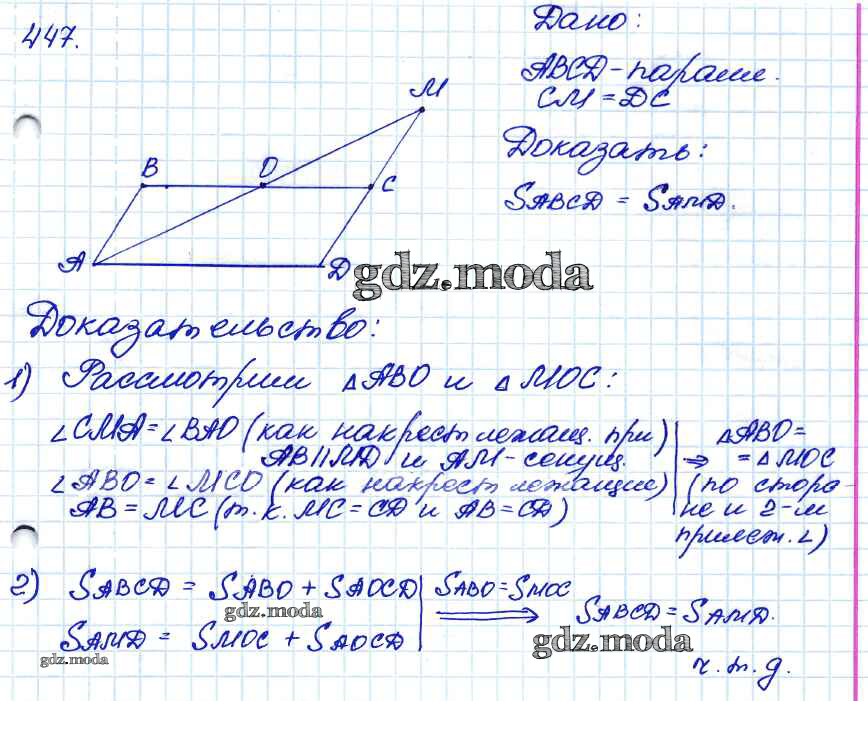 447.
Дано:
ABCD - парал.
CM = DC
Доказать:
SABCD = SAMD.
M
B
O
C
A
D
gdz.moda
Доказательство:
1) Рассмотрим △ABO и △MOC:
∠CMA = ∠BAO (как накрест лежащ. при)
AB || MD и AM - секущ.
∠ABO = ∠MCO (как накрест лежащие)
AB = MC (т.к. MC = CD и AB = CD)
△ABO =
⇒ = △MOC
(по сторо-
не и 2-м
прилеж. ∠)
2) SABCD = SABO + SAOCD
gdz.moda
SAMD = SMOC + SAOCD
gdz.moda
SABO = SMOC
⟹
SABCD = SAMD.
gdz.moda
ч.т.д.